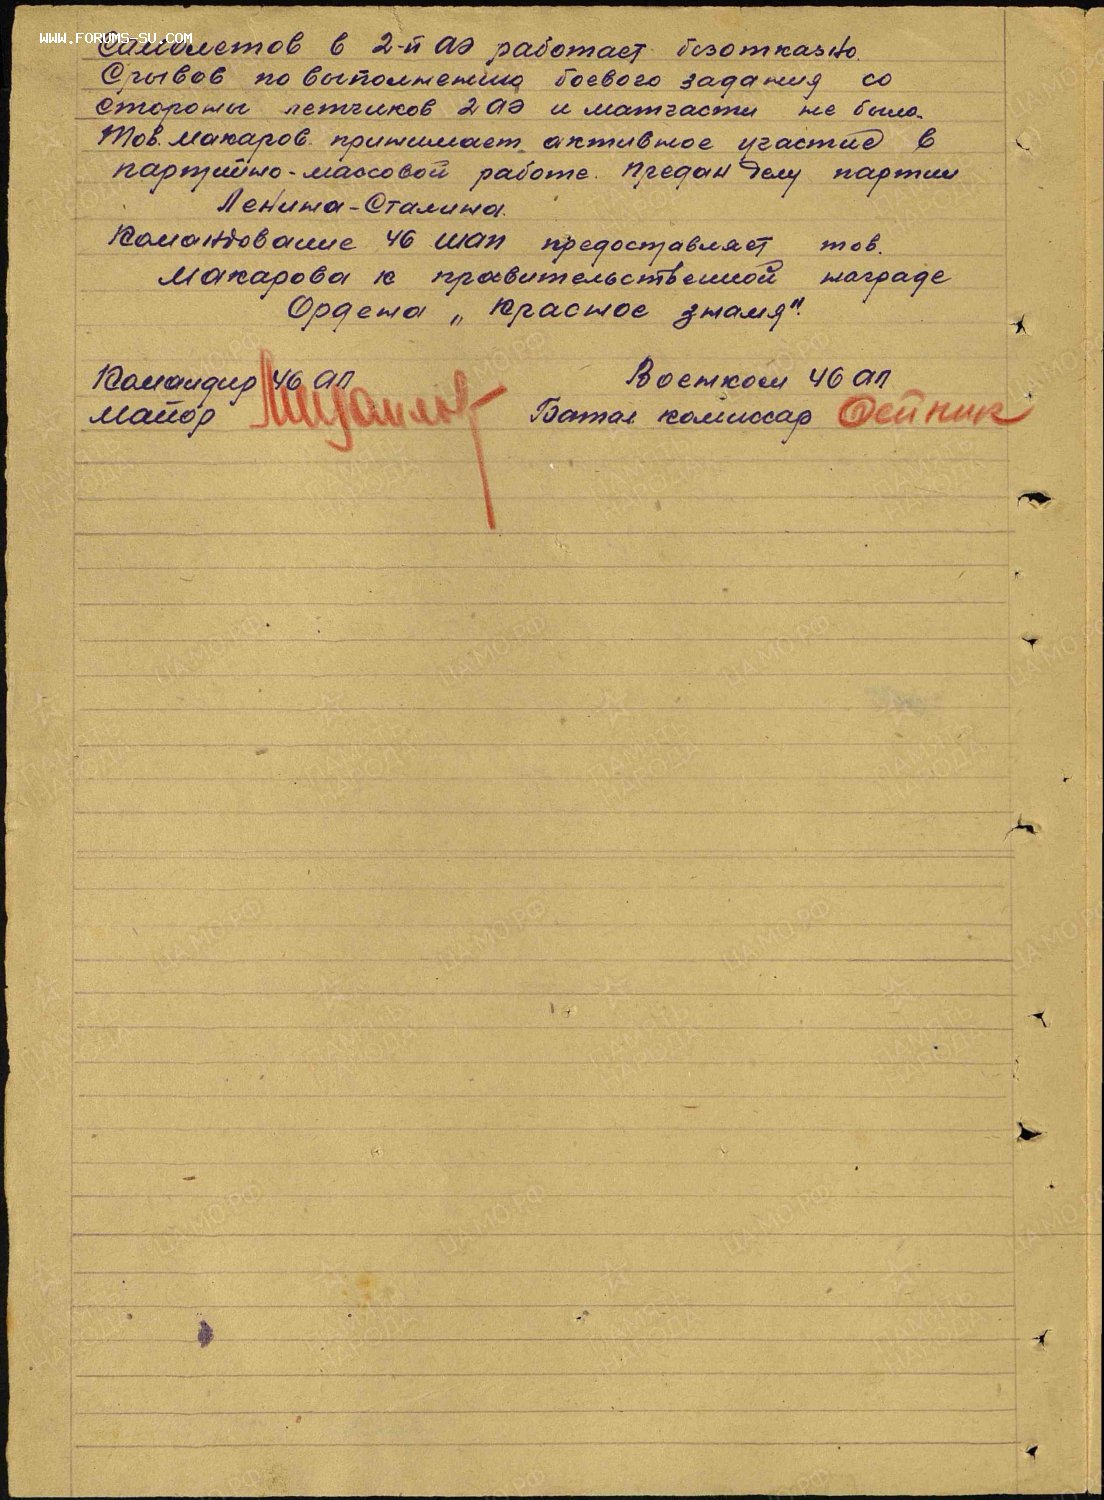 WWW.FORUMS-SU.COM
Самолетов в 2-й АЭ работает безотказно.
Срывов по выполнению боевого задания со
стороны летчиков 2 АЭ и матчасти не было.
Тов. Макаров принимает активное участие в
партийно-массовой работе. Предан делу партии
Ленина-Сталина.
Командование 46 ШАП предоставляет тов.
Макарова к правительственной награде
Ордена „Красное знамя".
Командир 46 АП Военком 46 АП
майор Батал комиссар Олейник
ПАМЯТЬ НАРОДА
ЦА МО РФ